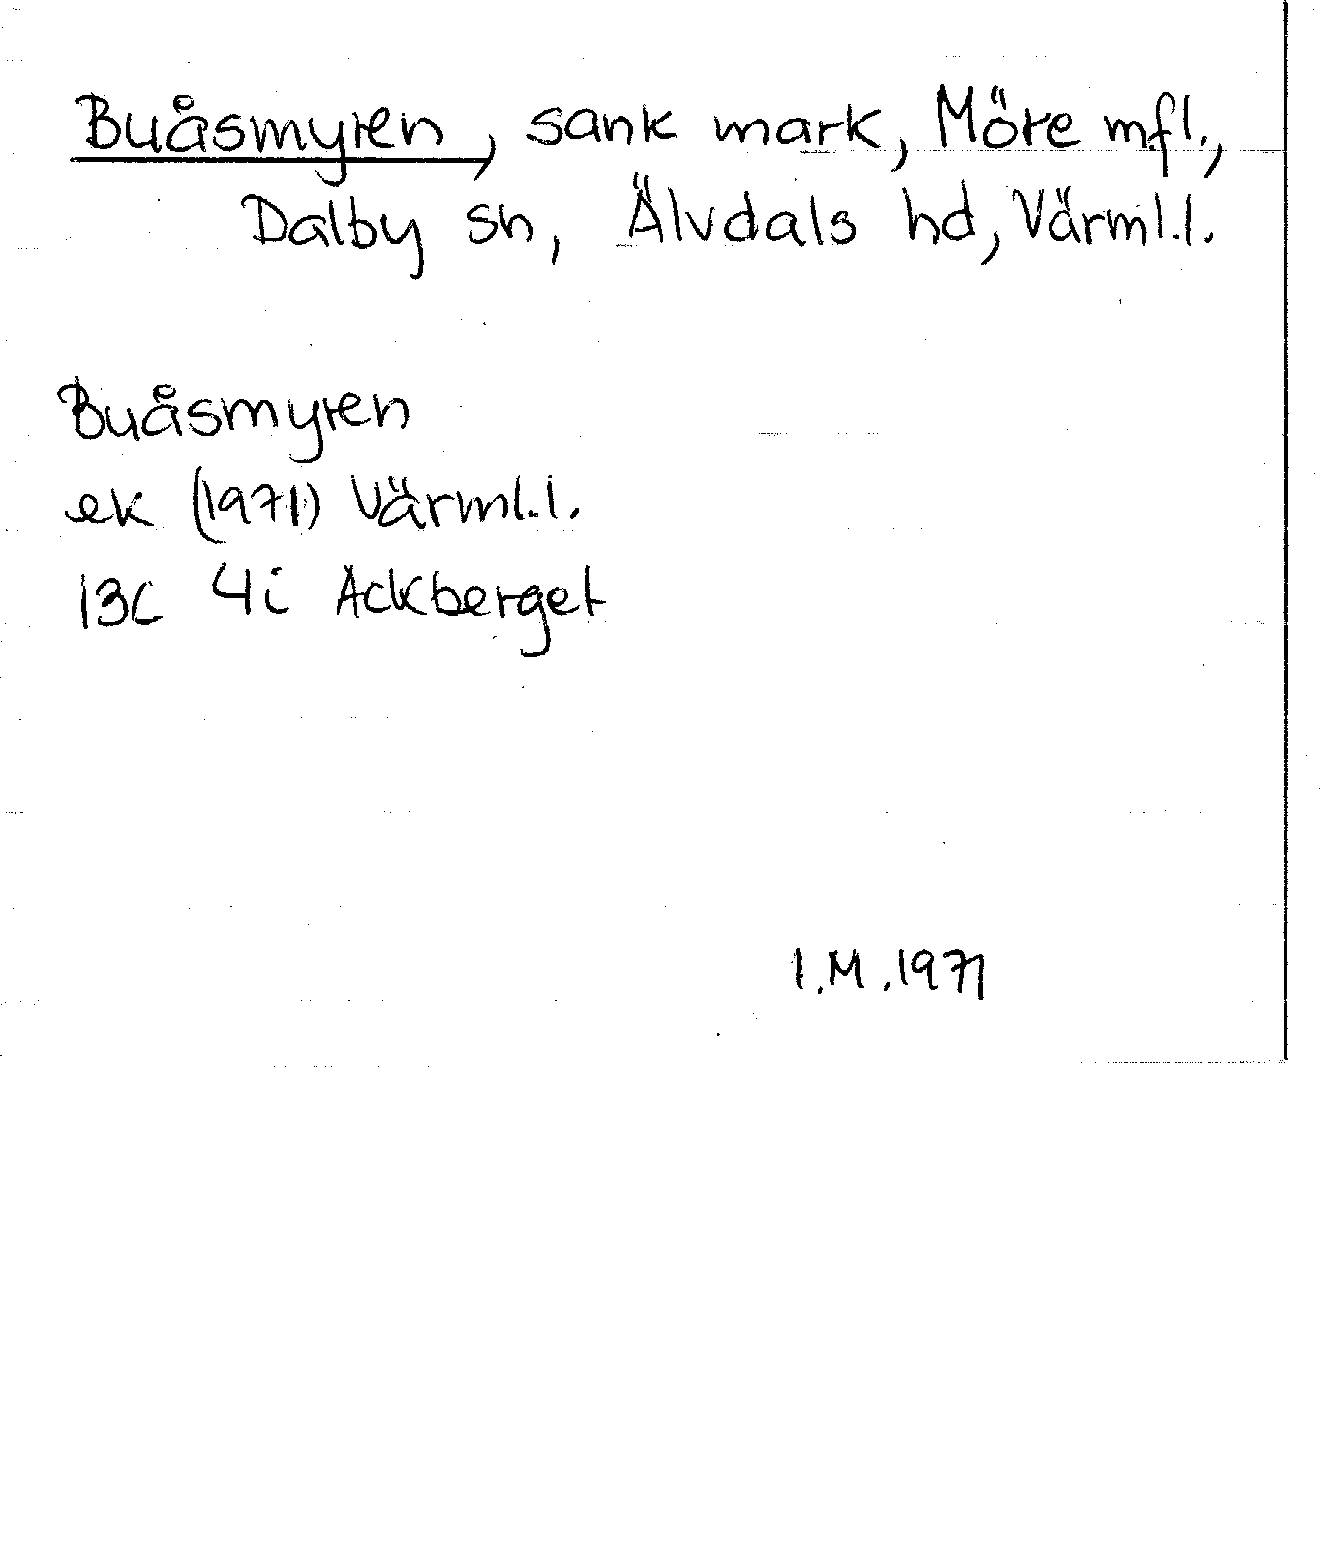 Buåsmyren, sank mark, Möre mfl.,
Dalby sn, Älvdals hd, Värml.l.
Buåsmyren
ek (1971) Värml.l.
13C 4i Ackberget
I.M.1971